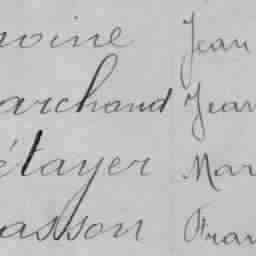 oine Jean
archand Jean
étayer Mar
asson Fran